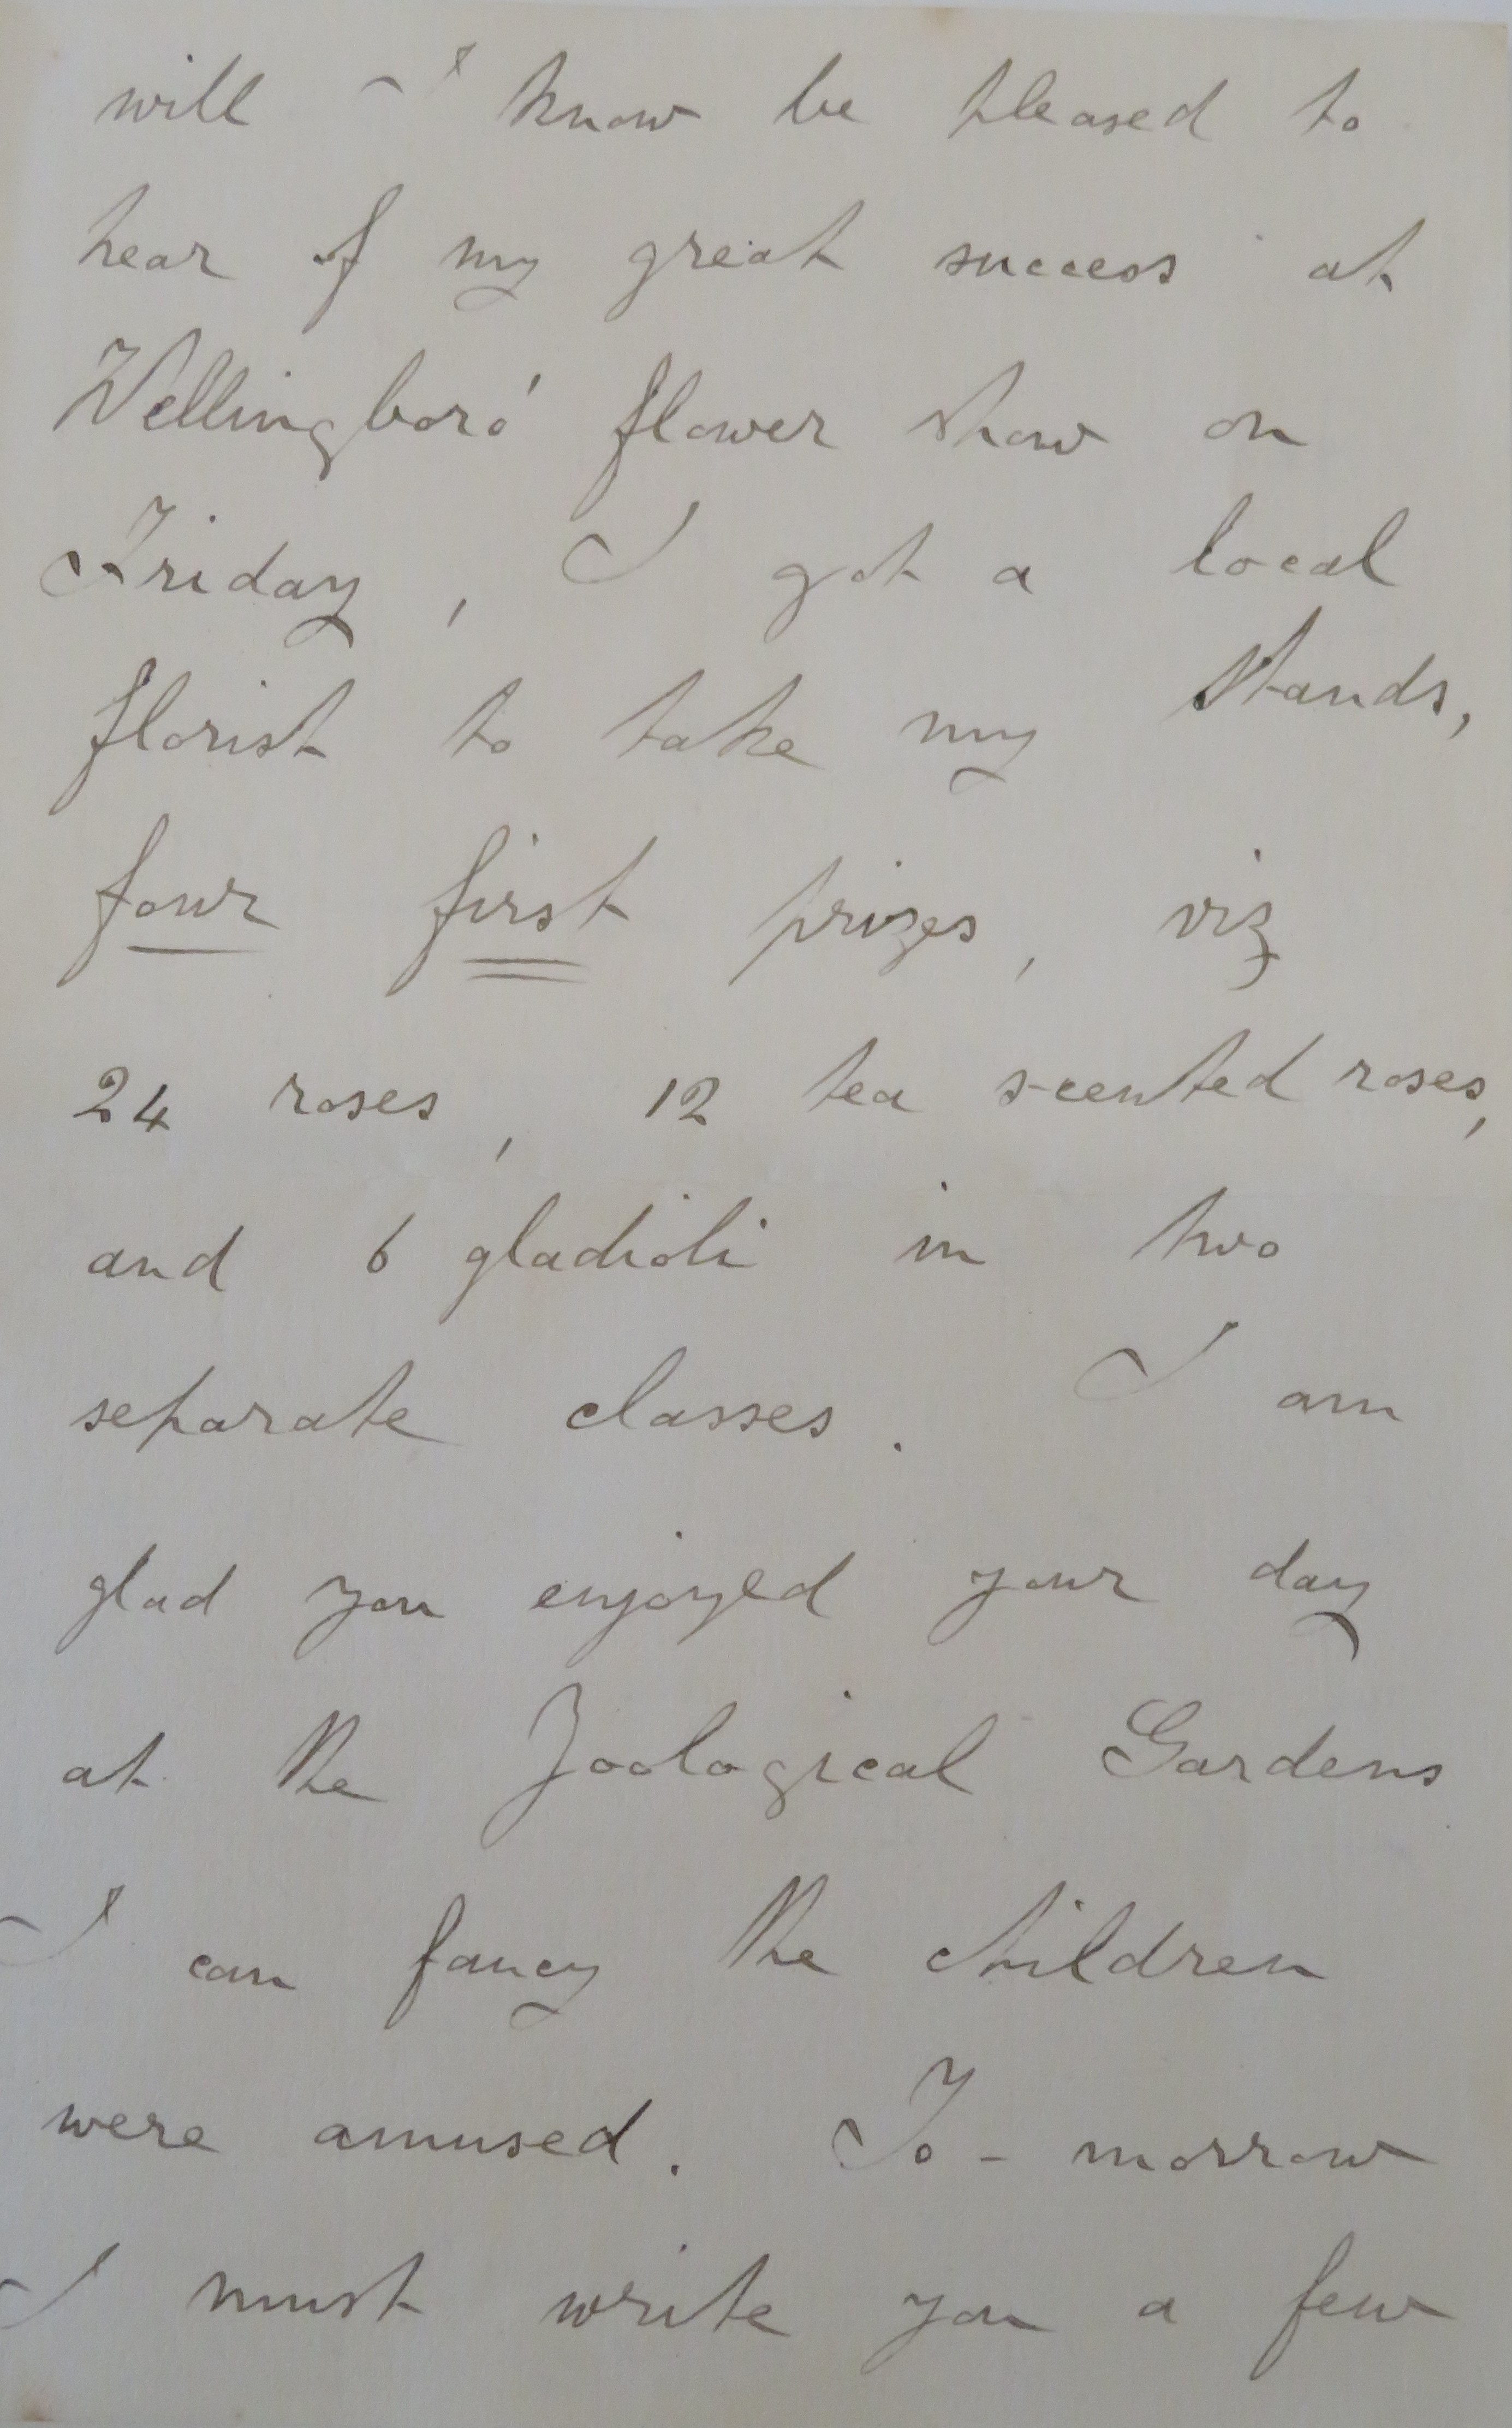 will I know be pleased to
hear of my great success at
Wellingboro' flower show on
Friday, I got a local
florist to take my stands,
four first prizes, viz
24 roses, 12 tea scented roses,
and 6 gladioli in two
separate classes. I am
glad you enjoyed your day
at the Zoological Gardens
I can fancy the children
were amused. To-morrow
I must write you a few